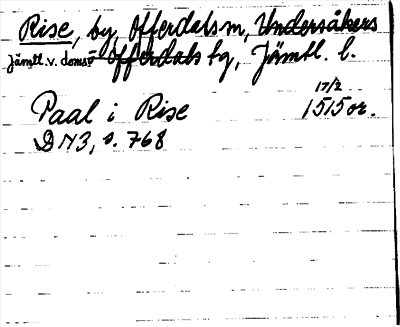 Rise, by, Offerdals sn, Undersåkers
Jämtl. v. doms. Offerdals tg, Jämtl. l.
17/2
Paal i Rise 1515 or.
DN3, s. 768